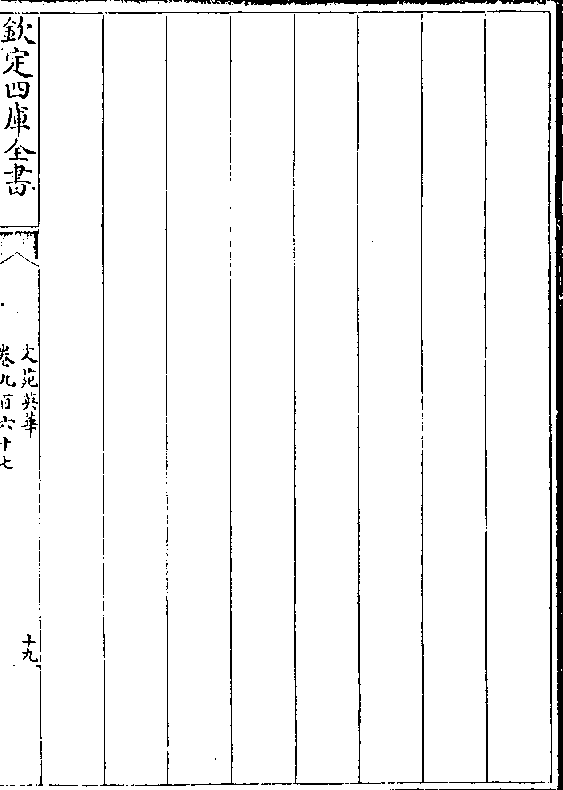 欽定四庫全書
文苑英華
卷九百六十七
十九